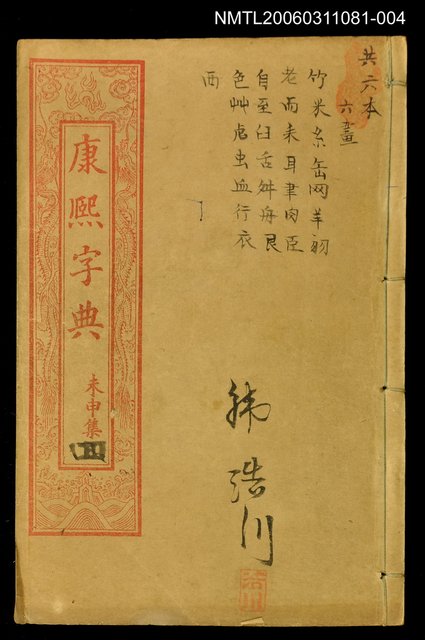 NMTL20060311081-004
共六本
六畫
竹米糸缶网羊羽
老而耒耳聿肉臣
自至臼舌舛舟艮
色艸虍虫血行衣
襾
康熙字典
未申集
四
浩川